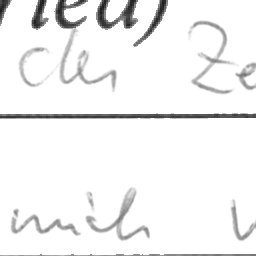 ried)
der Ze
mich